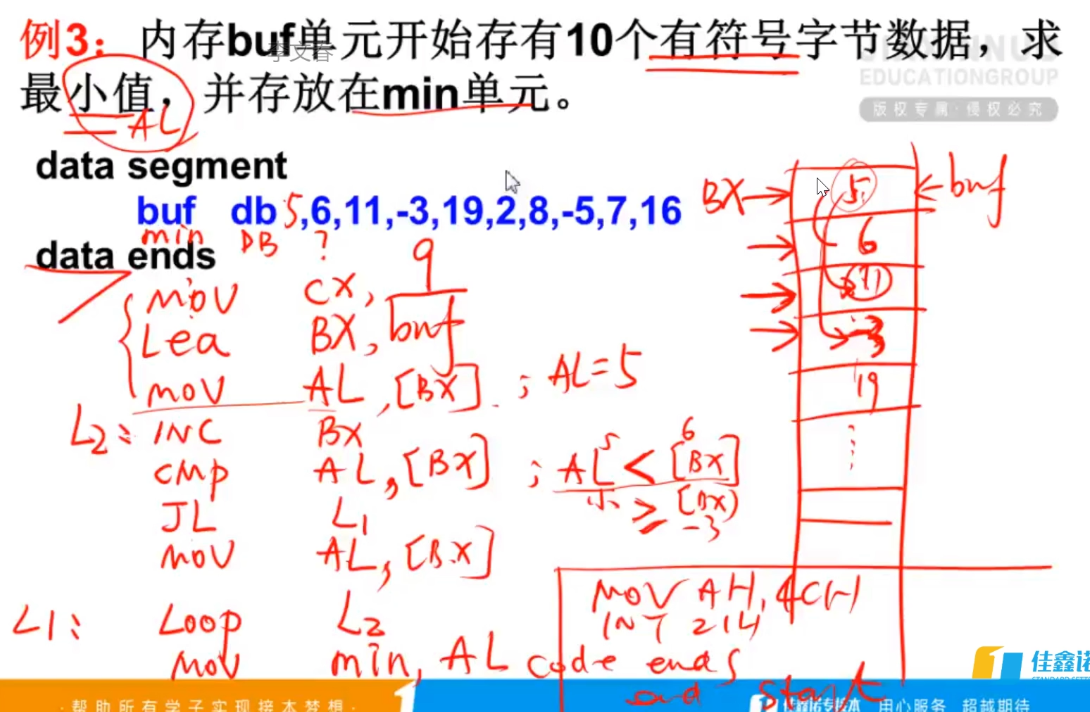 例3：内存buf单元开始存有10个有符号字节数据，求
最小值，并存放在min单元。
李文春
EDUCATIONGROUP
版权专属·侵权必究
AL
data segment
buf db 5,6,11,-3,19,2,8,-5,7,16
min DB ?
data ends
MOV CX, 9
Lea BX, buf
MOV AL, [BX] ; AL=5
L2: INC BX
CMP AL, [BX] ; AL < [BX]
5 6
小 ≥ [BX]
-3
JL L1
MOV AL, [BX]
L1: Loop L2
MOV min, AL
BX
buf
5
6
11
-3
19
MOV AH, 4CH
INT 21H
code ends
end start
·帮助所有学子实现接本梦想·
1
佳鑫诺专接本 用心服务 超越期待
佳鑫诺